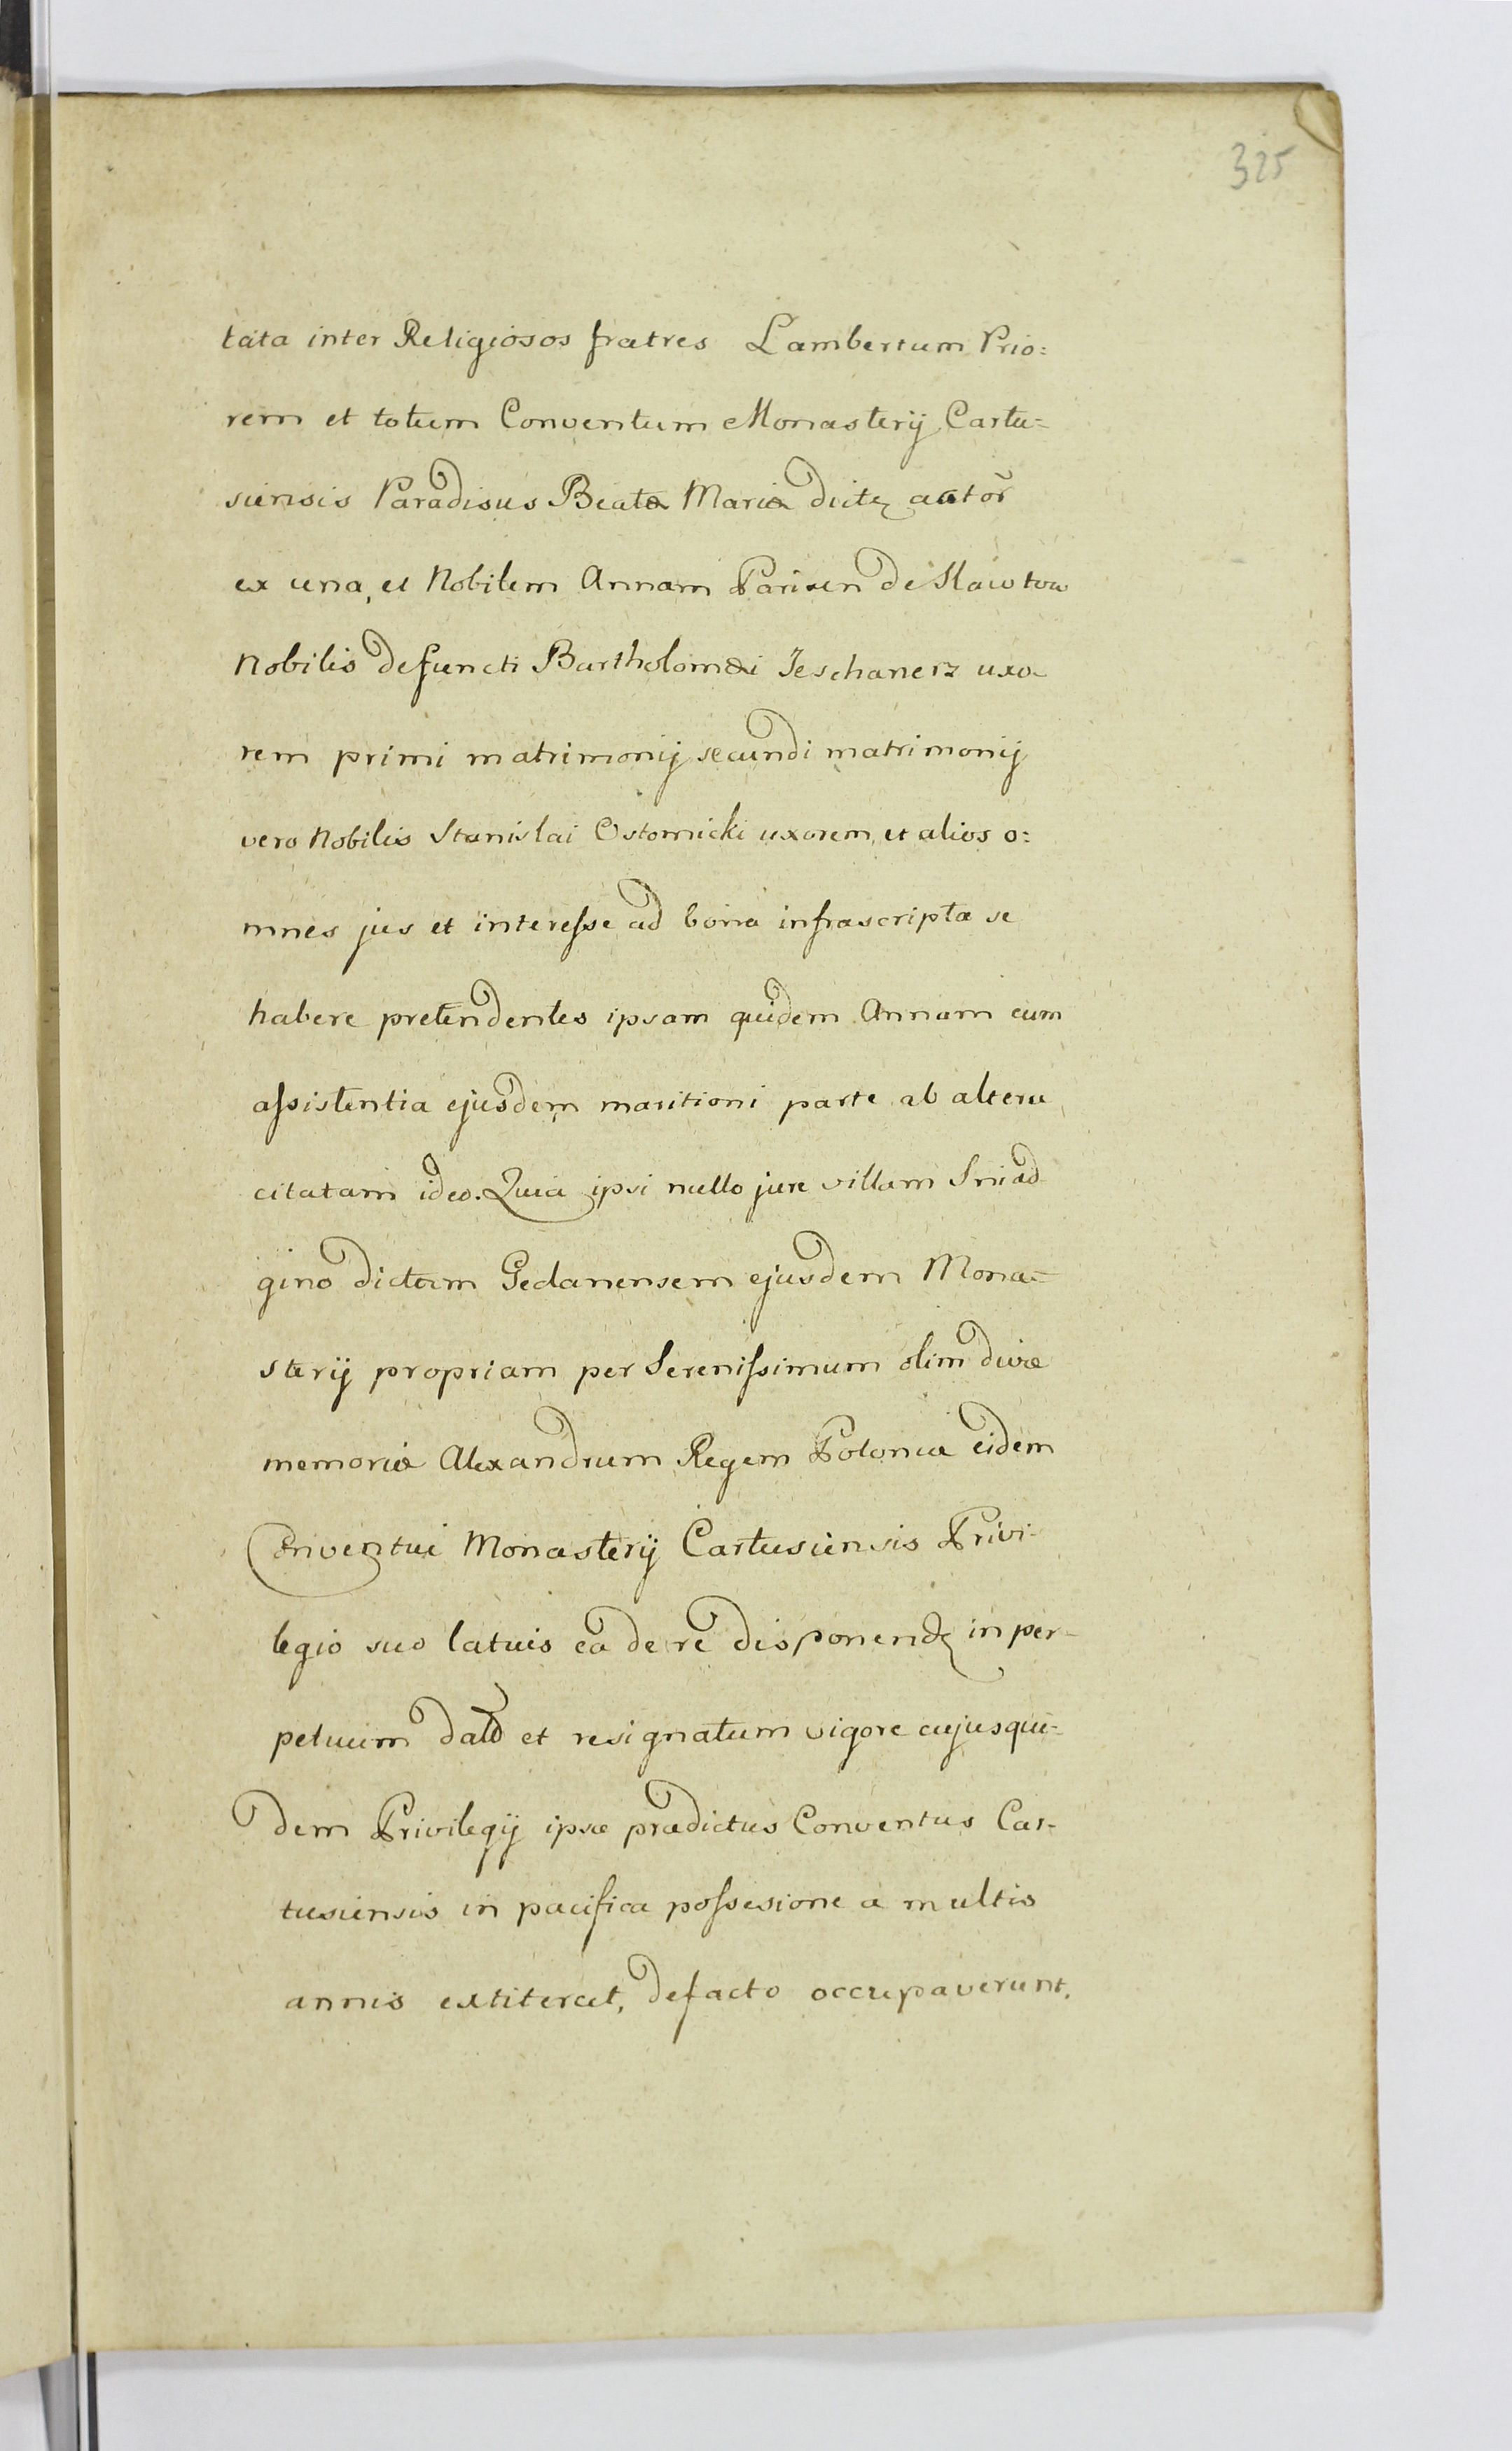 325
tata inter Religiosos fratres Lambertum Prio:
rem et totum Conventum Monasterij Cartu=
siensis Paradisus Beatæ Mariæ dictꝫ actor̃
ex una, et Nobilem Annam Parisen de Slawtow
Nobilis defuncti Bartholomæi Jeschanerz uxo-
rem primi matrimonij secundi matrimonij
vero Nobilis Stanislai Ostomicki uxorem, et alios o:
mnes jus et interesse ad bona infrascripta se
habere pretendentes ipsam quidem Annam cum
assistentia ejusdem maritioni parte ab altera
citatam ideo. Quia ipsi nullo jure villam Smad
gino dictam Gedanensem ejusdem Mona=
sterij propriam per Serenissimum olim divæ
memoriæ Alexandrum Regem Poloniæ eidem
Conventui Monasterij Cartusiensis Privi-
legio suo latuis ea de re disponendꝫ in per-
petuum dat et resignatum vigore cujusqui-
dem Privilegij ipse prædictus Conventus Car-
tusiensis in pacifica possesione a multis
annis extiterat, defacto occupaverunt,